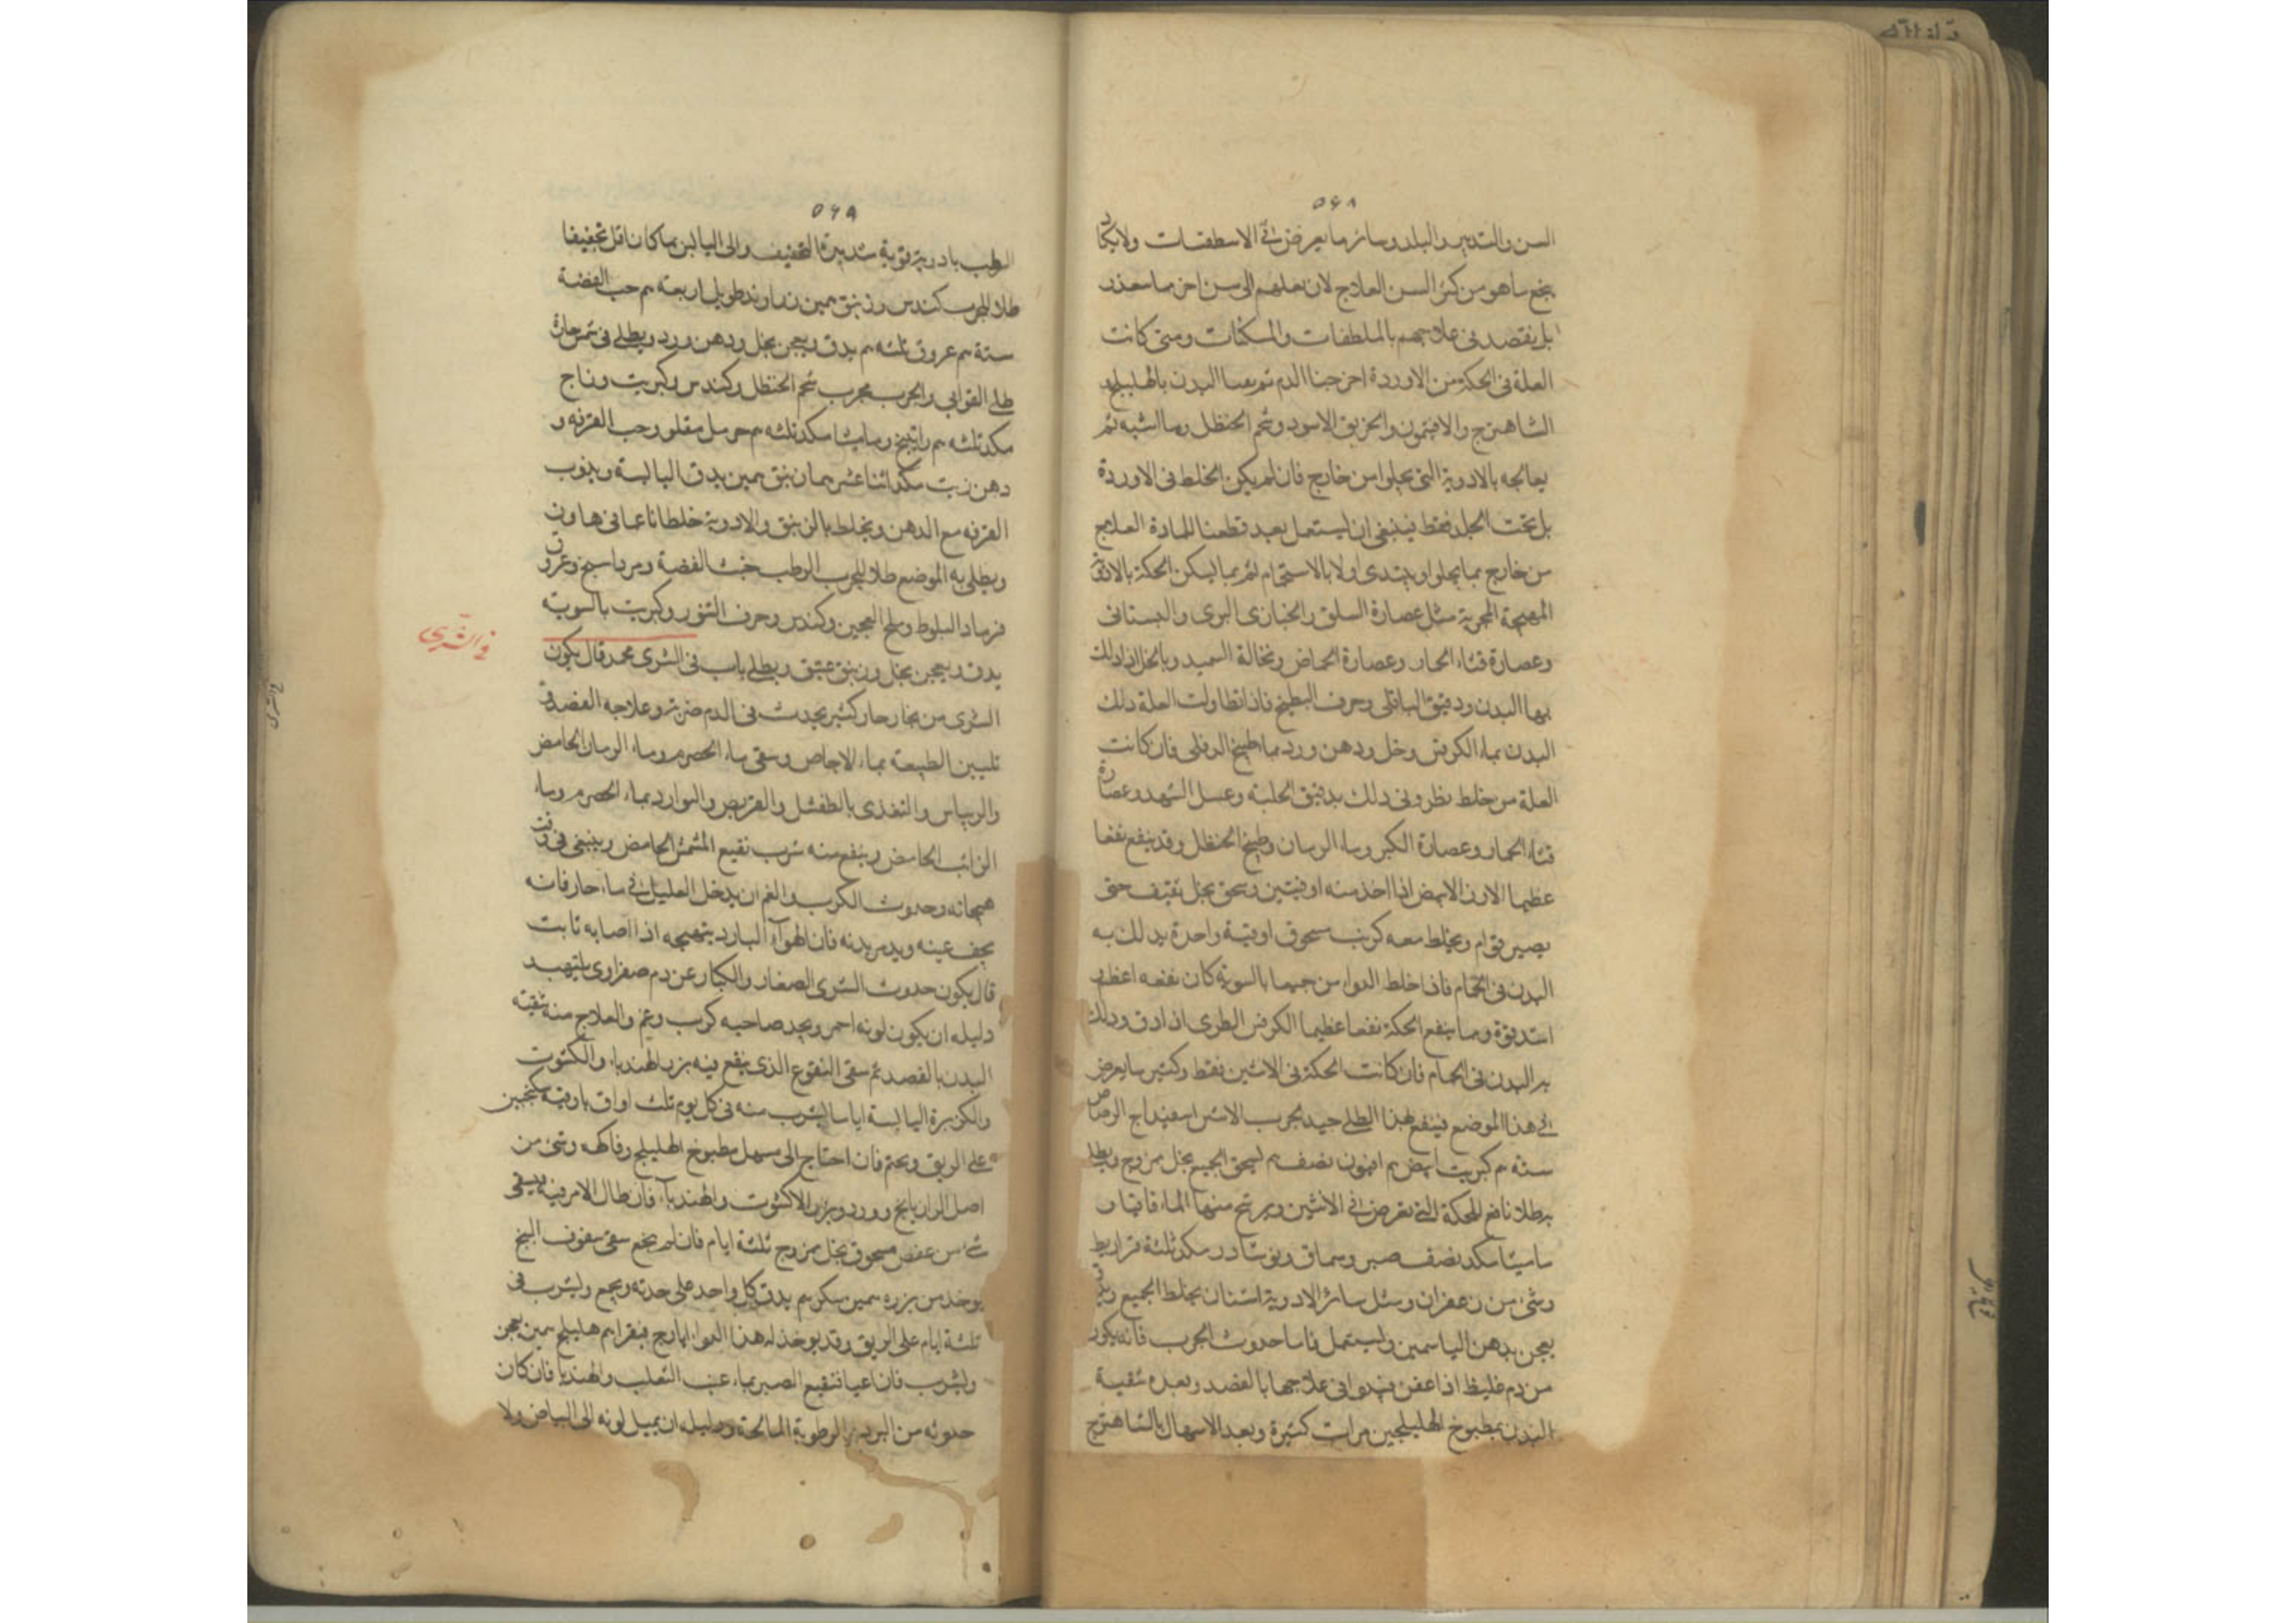 ٥٦٨
السن والتدبير والبلد وسائر ما يعرض في الاسطقسات ولا يكاد
ينجع ما هو من كثر السن العلاج لان نعلهم الى سن اخر مما
بل نقصد في علاجهم بالملطفات والمسكنات ومتى كانت
العلة في الحكة من الاوردة اخرجنا الدم ثم البدن بالهليلج و
الشاهترج والافتيمون والخربق الاسود وشحم الحنظل وما اشبه ثم
يعالجه بالادوية التي يجلوا من خارج فان لم يكن الخلط في الاوردة
بل تحت الجلد فقط فينبغي ان يستعمل بعد قطعنا للمادة العلاج
من خارج بما يجلوا ويبتدى اولا بالاستحمام ثم بما يسكن الحكة بالادوية
المجربة مثل عصارة السلق والخبازى البرى والبستانى
وعصارة قثاء الحمار وعصارة الحماض ونخالة السميد وبالخل اذا دلك
بها البدن ودقيق الباقلى وجرف البطيخ فاذا تطاولت العلة دلك
البدن بماء الكرفس وخل ودهن ورد بماء طبيخ الدفلى فان كانت
العلة من خلط نظر وفى ذلك بدقيق الحلبة وعسل الشهد وعصارة
قثاء الحمار وعصارة الكبر وماء الرمان وطبيخ الحنظل وقد ينفع نفعا
عظيما الارز الابيض اذا اخذ منه اوقيتين وسحق بخل ثقيف حتى
يصير قوام ويخلط معه كرنب مسحوق اوقية واحدة يدلك به
البدن في الحمام فاذا خلط الدوا من جميعها بالسوية كان نفعه اعظم و
اشد قوة ومما ينفع الحكة نفعا عظيما الكرفس الطرى اذا دق ودلك
به البدن في الحمام فان كانت الحكة في الانثيين فقط وكثير ما يعرض
في هذا الموضع فينتفع بهذا الطلى جيد لجرب الانثيين اسفيداج الرصاص
ستة م كبريت ابيض م افيون نصف م يسحق الجميع بخل مزوج ويطلى
به طلا نافع للحكة التي تعرض في الانثيين ويرشح منها الماء قاقيا و
ماميثا مكد نصف صبر وسماق ونوشادر مكد ثلثة قراريط
وشئ من زعفران ومثل سائر الادوية اشنان يخلط الجميع
يعجن بدهن الياسمين ويستعمل فاما حدوث الجرب فانه يكون
من دم غليظ اذا عفن فيبدوا في علاجها بالفصد وبعده تنقية
البدن بمطبوخ الهليلجين مرات كثيرة وبعد الاسهال بالشاهترج
٥٦٩
الرطب بادوية قوية شديدة التجفيف والى اليابس بما كان اقل تجفيفا
طلا للجرب كندس وزئبق مين زراوند طويل اربعة م خبث الفضة
ستة م عروق ثلثه م يدق ويعجن بخل ودهن ورد ويطلى في شمس حارة
طلى القوابى والجرب مجرب شحم الحنظل وكندس وكبريت وزاج
مكد ثلثه م راتينج وماميثا مكد ثلثه م حرمل مقلو وحب القرفه و
دهن زيت مكد اثنا عشر م زئبق مين يدق اليابسة ويذوب
القرفه مع الدهن ويخلط بالزئبق والادوية خلطا ناعما في هاون
ويطلى به الموضع طلا للجرب الرطب خبث الفضة ومرداسنج وعروق
ورماد البلوط وملح العجين وكندس وخزف التنور وكبريت بالسوية
في الشرى
يدق ويعجن بخل وزئبق عتيق ويطلى باب في الشرى محمد قال يكون
الشرى من بخار حار كثير يحدث في الدم ضربة وعلاجه الفصد و
تليين الطبيعة بماء الاجاص وسقى ماء الحصرم وماء الرمان الحامض
والريباس والتغذى بالطفشل والقريص والبوارد بماء الحصرم وماء
الرائب الحامض وينفع منه شرب نقيع المشمش الحامض وينبغى في وقت
هيجانه وحدوث الكرب والغم ان يدخل العليل في ماء حار فانه
يجف عينه ويدر بدنه فان الهواء البارد يهيجه اذا اصابه ثابت
قال يكون حدوث الشرى الصغار والكبار عن دم صفراوى يلتهب
دليله ان يكون لونه احمر ويجد صاحبه كرب وغم والعلاج منه تنقية
البدن بالفصد ثم سقى النقوع الذى ينقع فيه بزر الهندباء والكشوت
والكزبرة اليابسة اياما يشرب منه في كل يوم ثلث اواق باوقية سكنجبين
على الريق ويحتم فان احتاج الى مسهل مطبوخ الهليلج وفاكهه وشئ من
اصل الرازيانج وورد وبزر الاكشوت والهندباء فان طال الامر فيه يسقى
شئ من عفص مسحوق بخل مزوج ثلثة ايام فان لم ينجع سقى سفوف البنج
يوخذ من بزره مين سكر م يدق كل واحد على حدته ويجمع ويشرب في
ثلثة ايام على الريق وقد يوخذ له هذا الدوا ايارج فيقرا م هليلج مين يعجن
ويشرب فان اعيا فنقيع الصبر بماء عنب الثعلب والهندبا فان كان
حدوثه من البرد والرطوبة المالحة ودليله ان يميل لونه الى البياض ولا